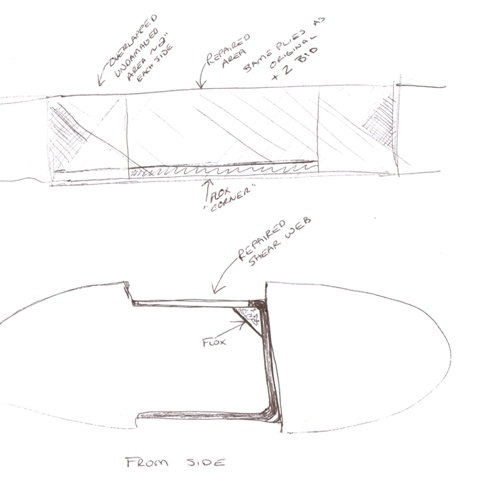 OVERLAPPED
UNDAMAGED
AREA ~2"
EACH SIDE
REPAIRED
AREA
SAME PLIES AS
ORIGINAL
+ 2 BID
"FLOX
CORNER"
REPAIRED
SHEAR WEB
FLOX
FROM SIDE